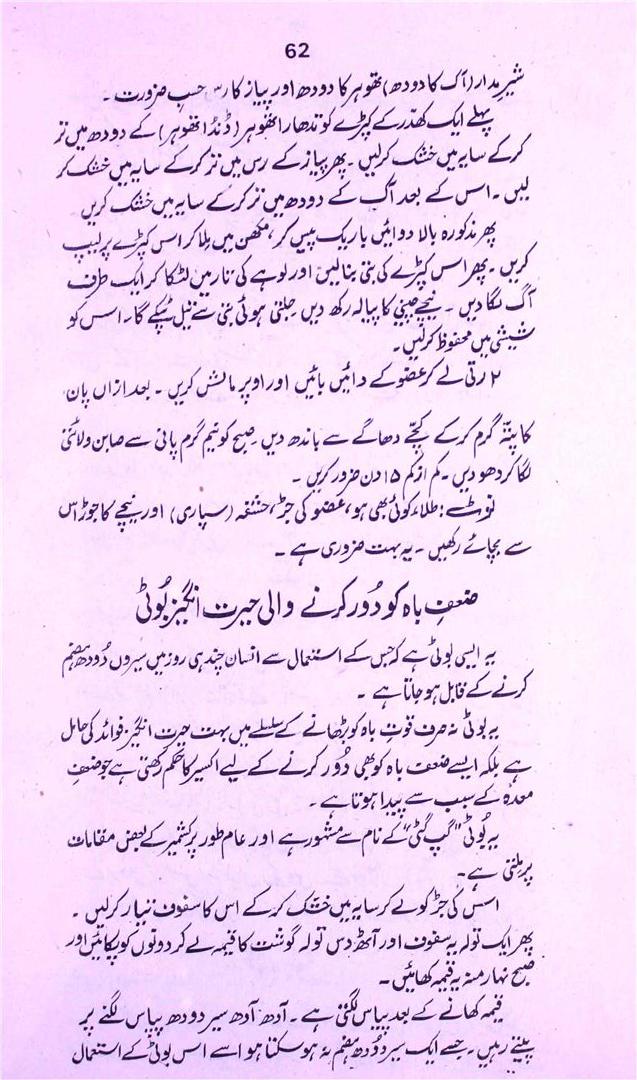 62
شیرِ مدار (آک کا دودھ) تھوہر کا دودھ اور پیاز کا رس حسبِ ضرورت۔
پہلے ایک کھدّر کے کپڑے کو تدھارا تھوہر (ڈنڈا تھوہر) کے دودھ میں تر
کرکے سایہ میں خشک کرلیں۔ پھر پیاز کے رس میں تر کرکے سایہ میں خشک کر
لیں۔ اس کے بعد آگ کے دودھ میں تر کرکے سایہ میں خشک کریں
پھر مذکورہ بالا دوائیں باریک پیس کر، مکھن میں ملا کر اس کپڑے پر لیپ
کریں۔ پھر اس کپڑے کی بتی بنالیں اور لوہے کی تار میں لٹکا کر ایک طرف
آگ لگا دیں۔ نیچے چینی کا پیالہ رکھ دیں جلتی ہوئی بتی سے تیل ٹپکے گا۔ اس کو
شیشی میں محفوظ کرلیں۔
۲ رتی لے کر عضو کے دائیں بائیں اور اوپر مالش کریں۔ بعد ازاں پان
کا پتّہ گرم کرکے کچّے دھاگے سے باندھ دیں۔ صبح کو نیم گرم پانی سے صابن ولائتی
لگا کر دھو دیں۔ کم از کم ۱۵ دن ضرور کریں۔
نوٹ: طلاء کوئی بھی ہو، عضو کی جڑ، حشفہ (سپاری) اور نیچے کا جوڑ اس
سے بچائے رکھیں۔ یہ بہت ضروری ہے۔
ضعفِ باہ کو دُور کرنے والی حیرت انگیز بُوٹی
یہ ایسی بوٹی ہے کہ جس کے استعمال سے انسان چند ہی روز میں سیروں دُودھ ہضم
کرنے کے قابل ہو جاتا ہے۔
یہ بوٹی نہ صرف قوتِ باہ کو بڑھانے کے سلسلے میں بہت حیرت انگیز فوائد کی حامل
ہے بلکہ ایسے ضعف باہ کو بھی دُور کرنے کے لیے اکسیر کا حکم رکھتی ہے جو ضعفِ
معدہ کے سبب سے پیدا ہوتا ہے۔
یہ بُوٹی "گپ گٹی" کے نام سے مشہور ہے اور عام طور پر کشمیر کے بعض مقامات
پر ملتی ہے۔
اس کی جڑ کو لے کر سایہ میں خشک کرکے اس کا سفوف تیار کرلیں۔
پھر ایک تولہ یہ سفوف اور آٹھ دس تولہ گوشت کا قیمہ لے کر دونوں کو پکائیں اور
صبح نہار منہ یہ قیمہ کھائیں۔
قیمہ کھانے کے بعد پیاس لگتی ہے۔ آدھ آدھ سیر دودھ پیاس لگنے پر
پیتے رہیں۔ جسے ایک سیر دُودھ ہضم نہ ہو سکتا ہو اسے اس بوٹی کے استعمال